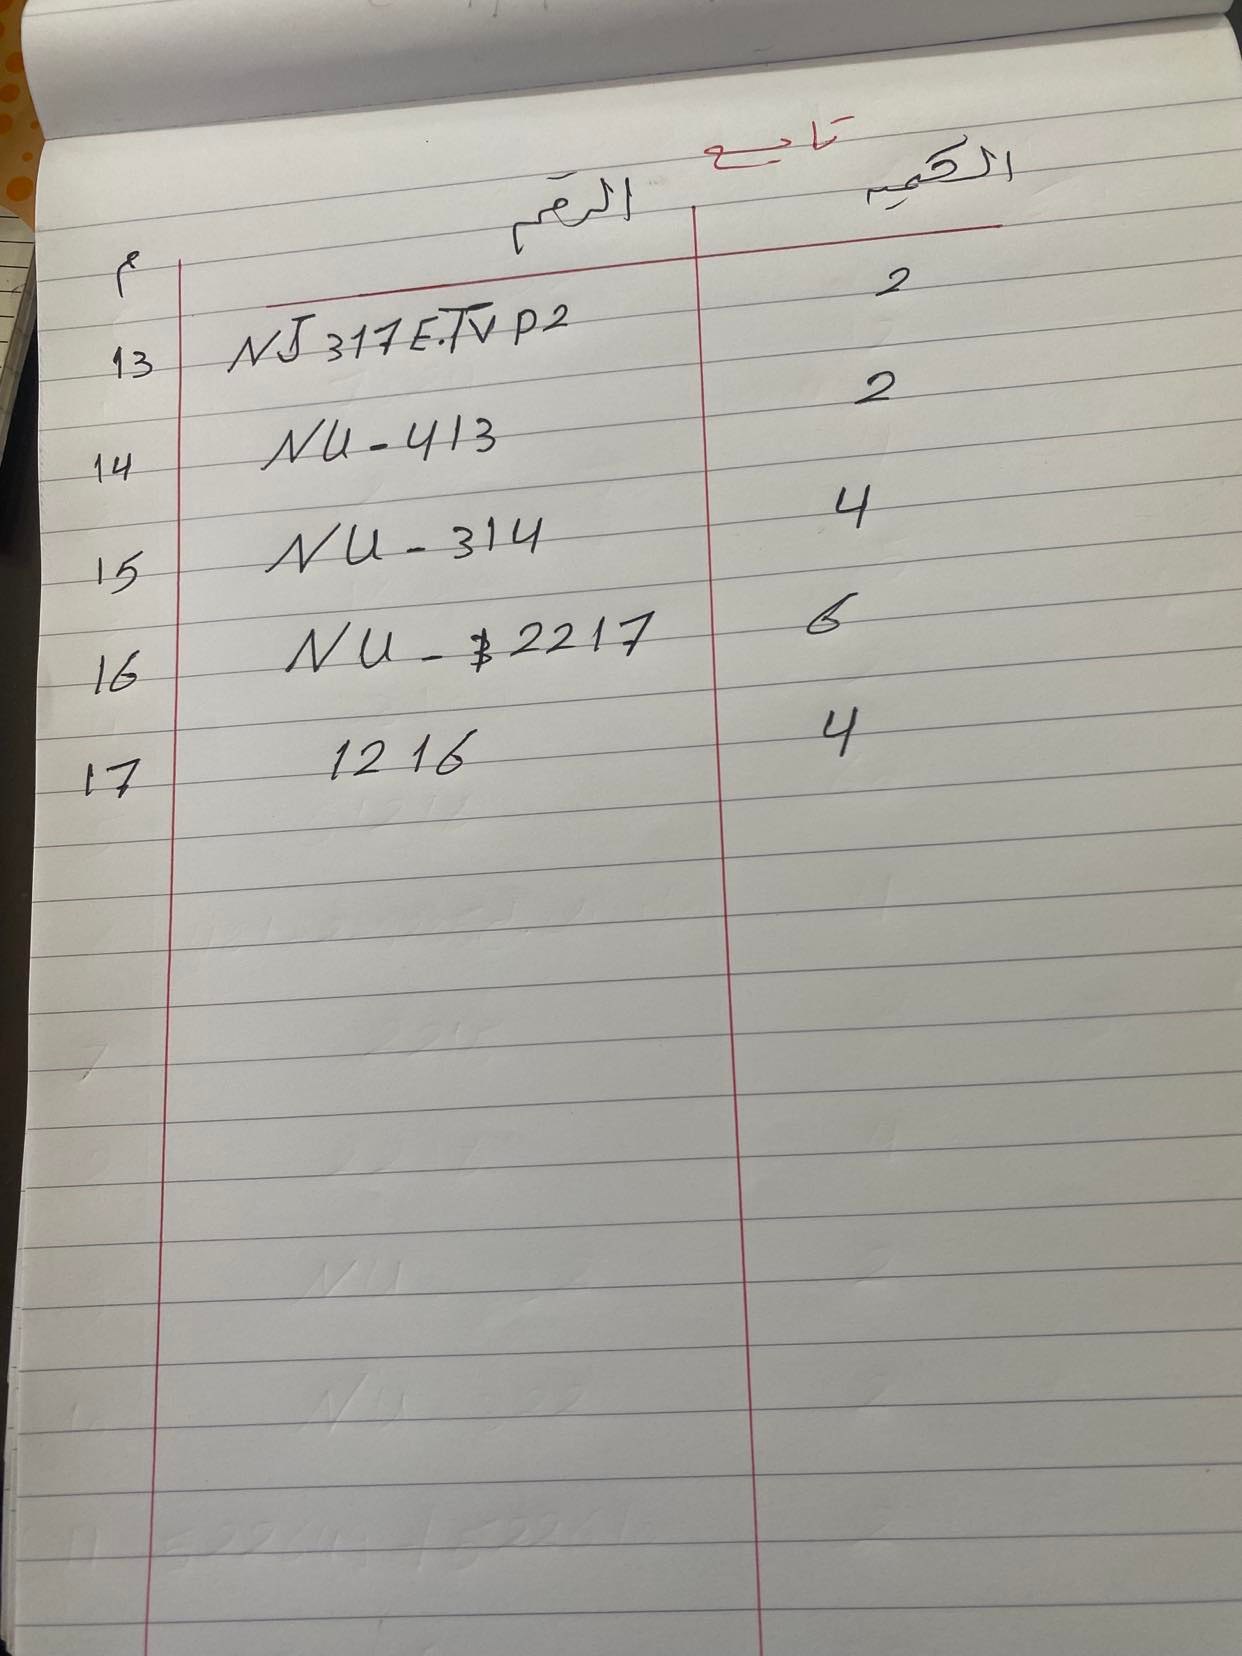 تابع
م الرقم الكميه
13 NJ317E.TVP2 2
14 NU-413 2
15 NU-314 4
16 NU-2217 6
17 1216 4